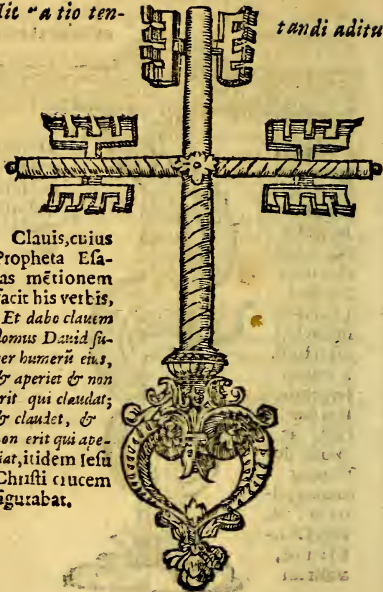 tio ten-
tandi aditu
Clavis,cuius
Propheta Esa-
as mẽtionem
facit his verbis,
Et dabo clavem
domus Dauid su-
per humerũ eius,
& aperiet & non
erit qui claudat;
& claudet, &
non erit qui ape-
riat,itidem Iesu
Christi crucem
figurabat.